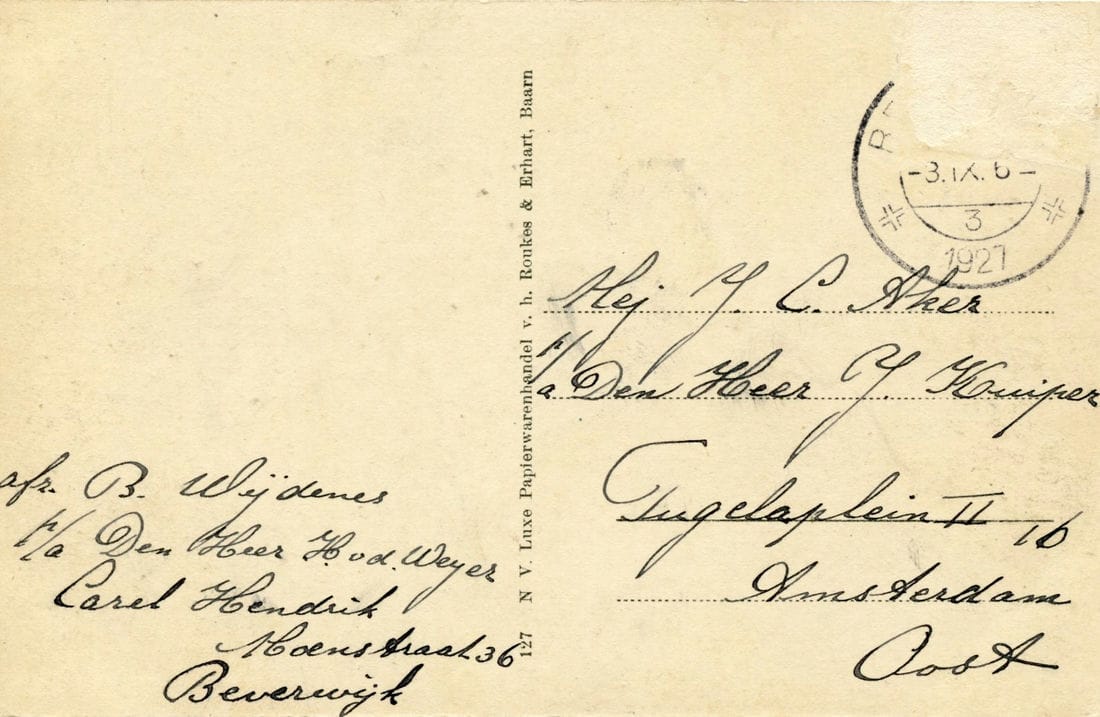 -3.IX. 6-
3
1927
Mej J. C. Aker
p/a Den Heer J. Kuiper
Tugelaplein II 16
Amsterdam
Oost
127 N V. Luxe Papierwarenhandel v. h. Roukes & Erhart, Baarn
afz. B. Wijdenes
p/a Den Heer H. v d. Weyer
Carel Hendrik
Moensstraat 36
Beverwijk